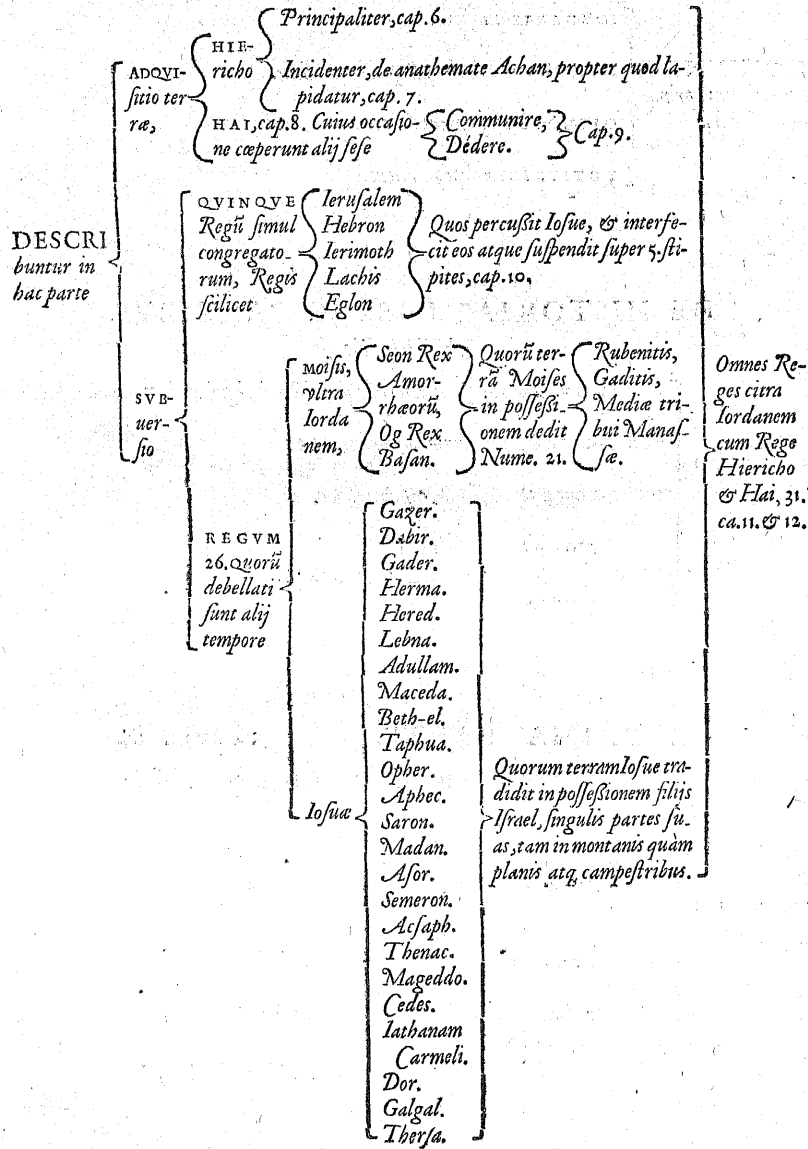 Principaliter, cap. 6.
HIE-
richo
Incidenter, de anathemate Achan, propter quod la-
pidatur, cap. 7.
ADQVI-
ſitio ter
ræ,
HAI, cap. 8. Cuius occaſio-
ne cœperunt alij ſeſe
Communire,
Dédere.
Cap. 9.
DESCRI
buntur in
hac parte
QVINQVE
Regū ſimul
congregato-
rum, Regis
ſcilicet
Ieruſalem
Hebron
Ierimoth
Lachis
Eglon
Quos percußit Ioſue, & interfe-
cit eos atque ſuſpendit ſuper 5. ſti-
pites, cap. 10.
SVB-
uer-
ſio
REGVM
26. Quorū
debellati
ſunt alij
tempore
Moiſis,
vltra
Iorda
nem,
Seon Rex
Amor-
rhæorū,
Og Rex
Baſan.
Quorū ter-
rā Moiſes
in poſſeßi-
onem dedit
Nume. 21.
Rubenitis,
Gaditis,
Mediæ tri-
bui Manaſ-
ſæ.
Ioſuæ
Gazer.
Dabir.
Gader.
Herma.
Hered.
Lebna.
Adullam.
Maceda.
Beth-el.
Taphua.
Opher.
Aphec.
Saron.
Madan.
Aſor.
Semeron.
Acſaph.
Thenac.
Mageddo.
Cedes.
Iathanam
Carmeli.
Dor.
Galgal.
Therſa.
Quorum terram Ioſue tra-
didit in poſſeßionem filijs
Iſrael, ſingulis partes ſu-
as, tam in montanis quàm
planis atq; campeſtribus.
Omnes Re-
ges citra
Iordanem
cum Rege
Hiericho
& Hai, 31.
ca. 11. & 12.